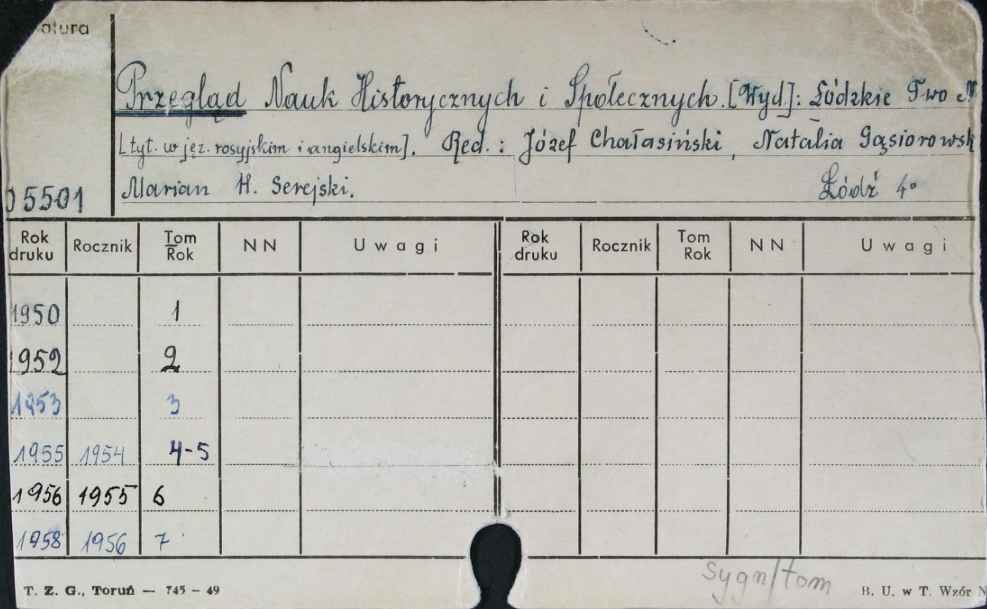 Przegląd Nauk Historycznych i Społecznych. [Wyd]: Łódzkie Two N
[tyt. w jęz. rosyjskim i angielskim]. Red.: Józef Chałasiński, Natalia Gąsiorowsk
05501 Marian H. Serejski. Łódź 4°
Rok druku Rocznik Tom Rok NN Uwagi Rok druku Rocznik Tom Rok NN Uwagi
1950 1
1952 2
1953 3
1955 1954 4-5
1956 1955 6
1958 1956 7
sygn/tom
T. Z. G., Toruń — 745 - 49 B. U. w T. Wzór N